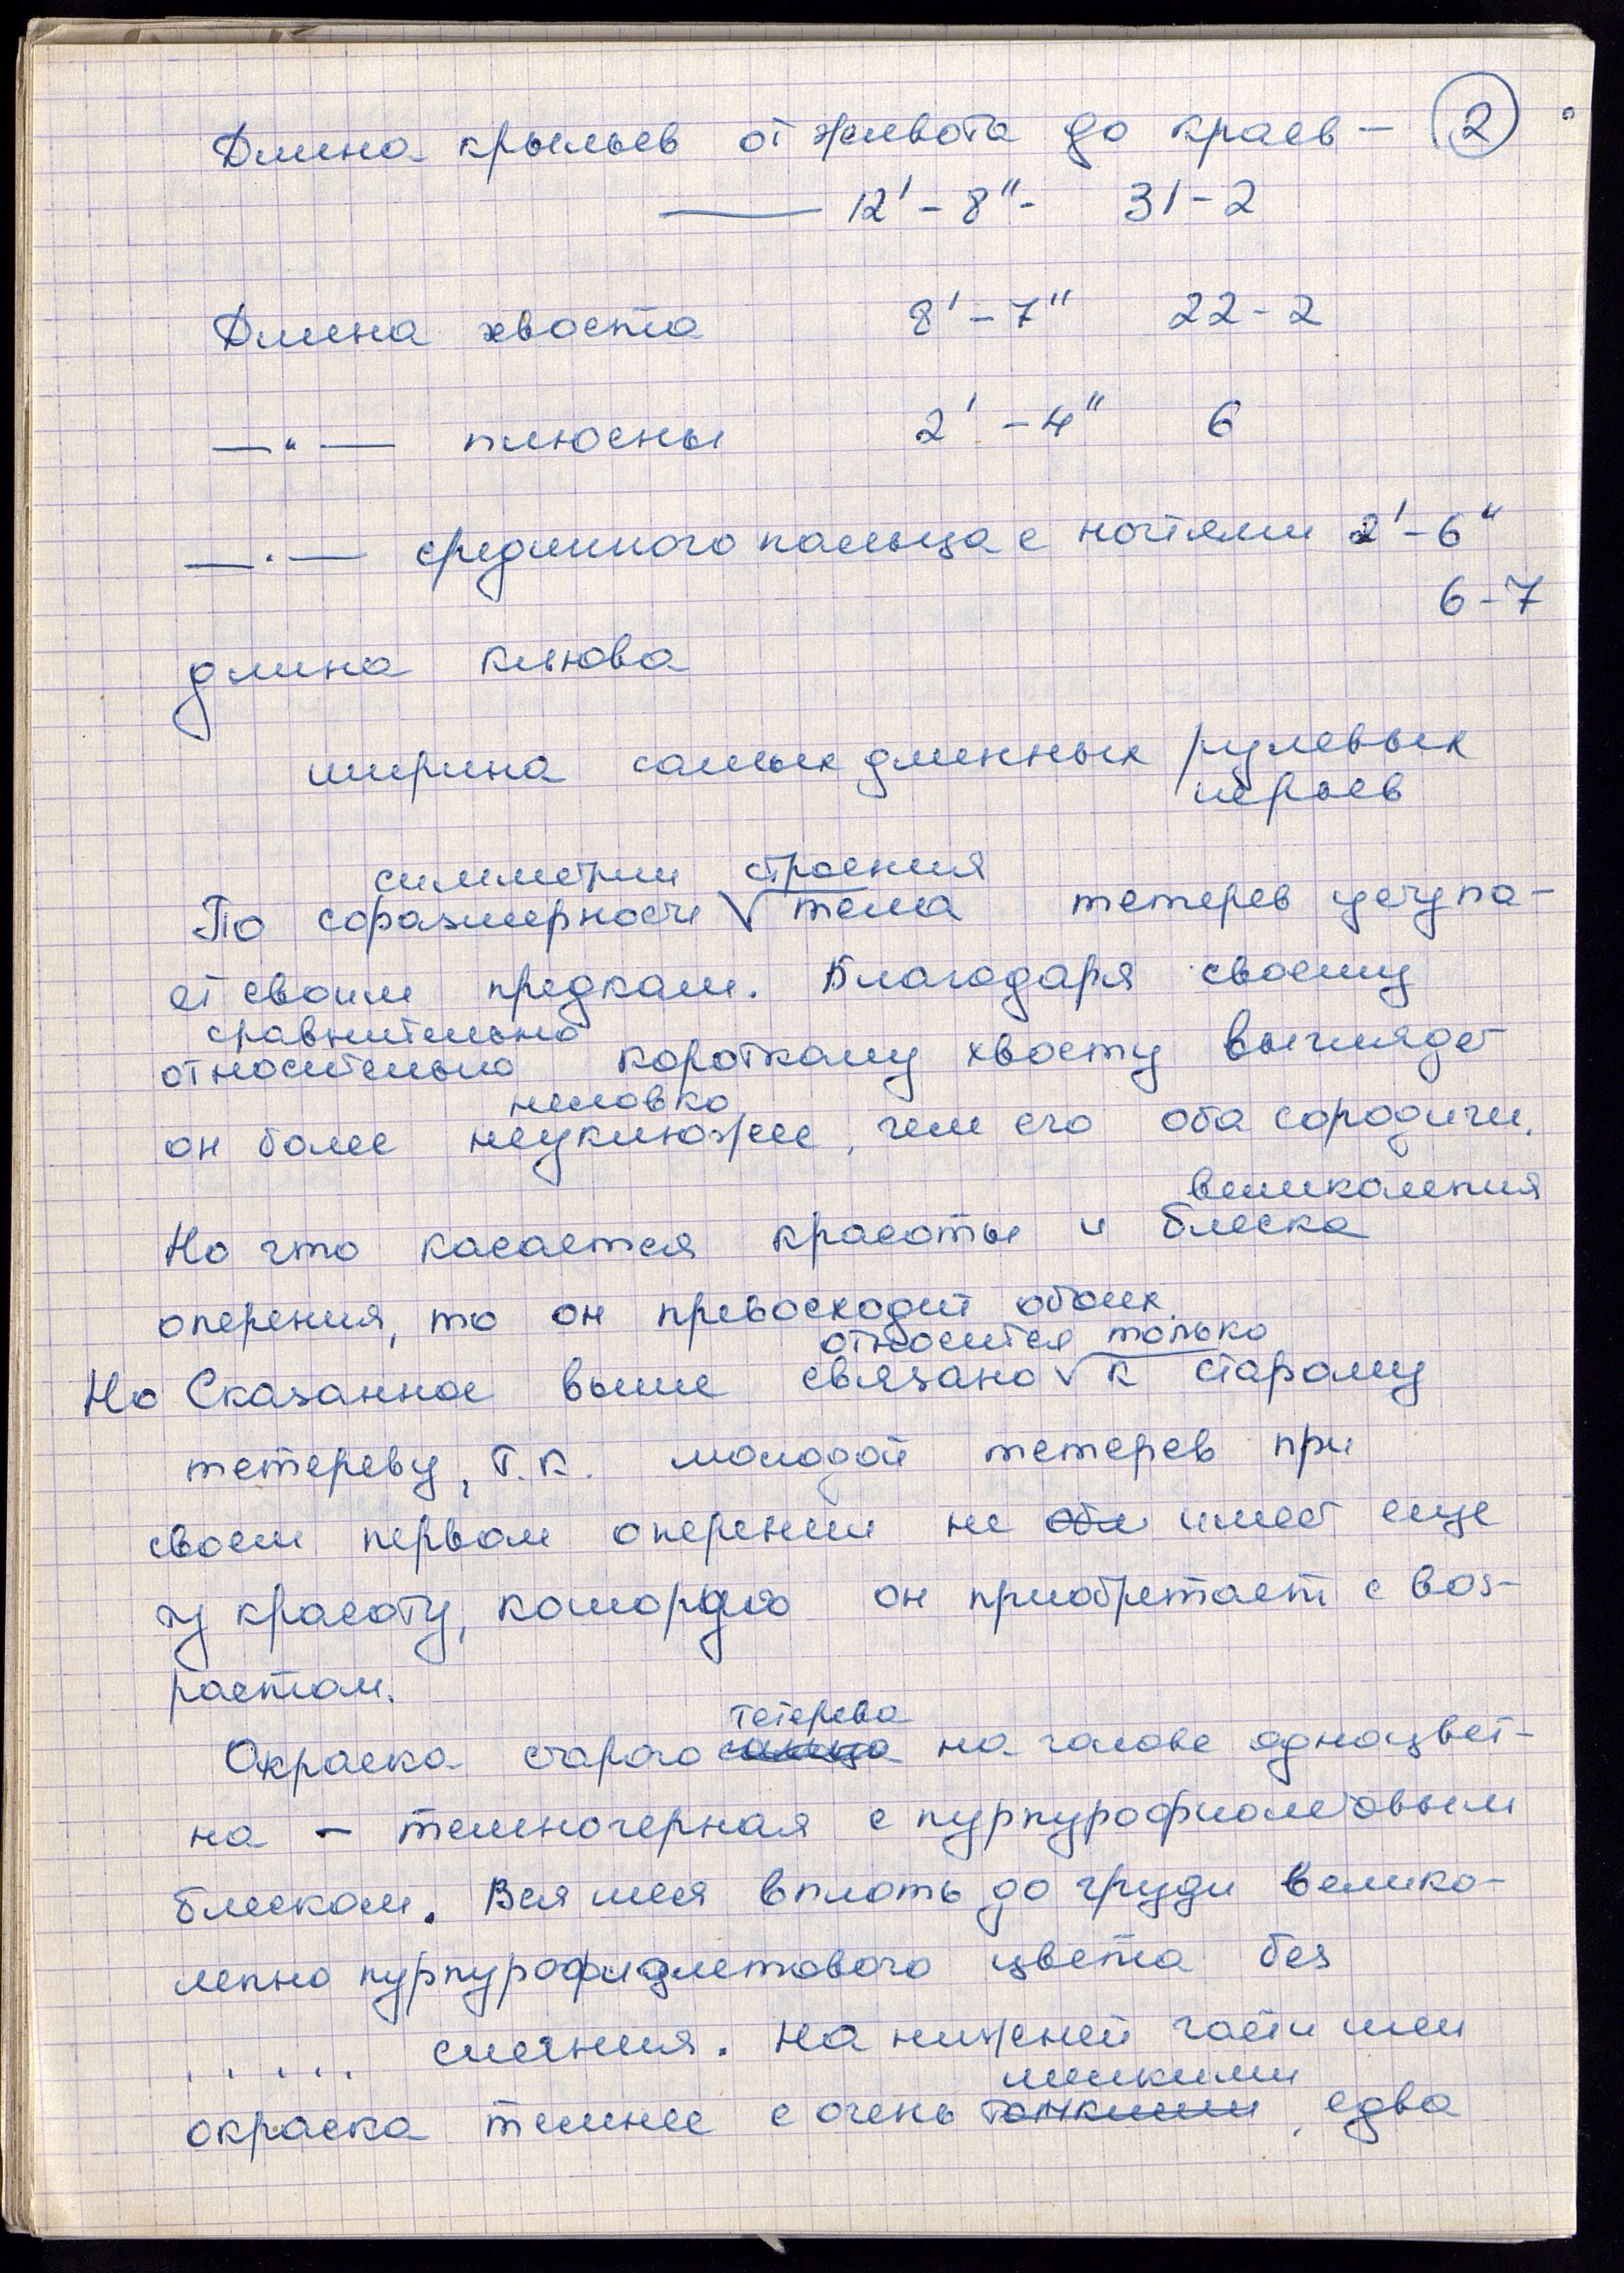 Длина крыльев от живота до краев – 2
12' – 8"- 31-2
Длина хвоста 8' – 7" 22-2
—"— плюсны 2' – 4" 6
—"— срединного пальца с ногтями 2' – 6"
6-7
длина клюва
ширина самых длинных рулевых
перьев
симметрии строения
По соразмерности √ тела тетерев уступа-
ет своим предкам. Благодаря своему
сравнительно
относительно короткому хвосту выглядет
неловко
он более неуклюжее, чем его оба сородичи.
великолепия
Но что касается красоты и блеска
оперения, то он превосходит обоих.
относится только
Но Сказанное выше связано √ к старому
тетереву, т.к. молодой тетерев при
своем первом оперении не имеет еще
ту красоту, которую он приобретает с воз-
растом.
тетерева
Окраска старого самца на голове одноцвет-
на – темночерная с пурпурофиолетовым
блеском. Вся шея вплоть до груди велико-
лепно пурпурофиолетового цвета без
. . . . . сияния. На нижней части шеи
мелкими
окраска темнее с очень тонкими, едва